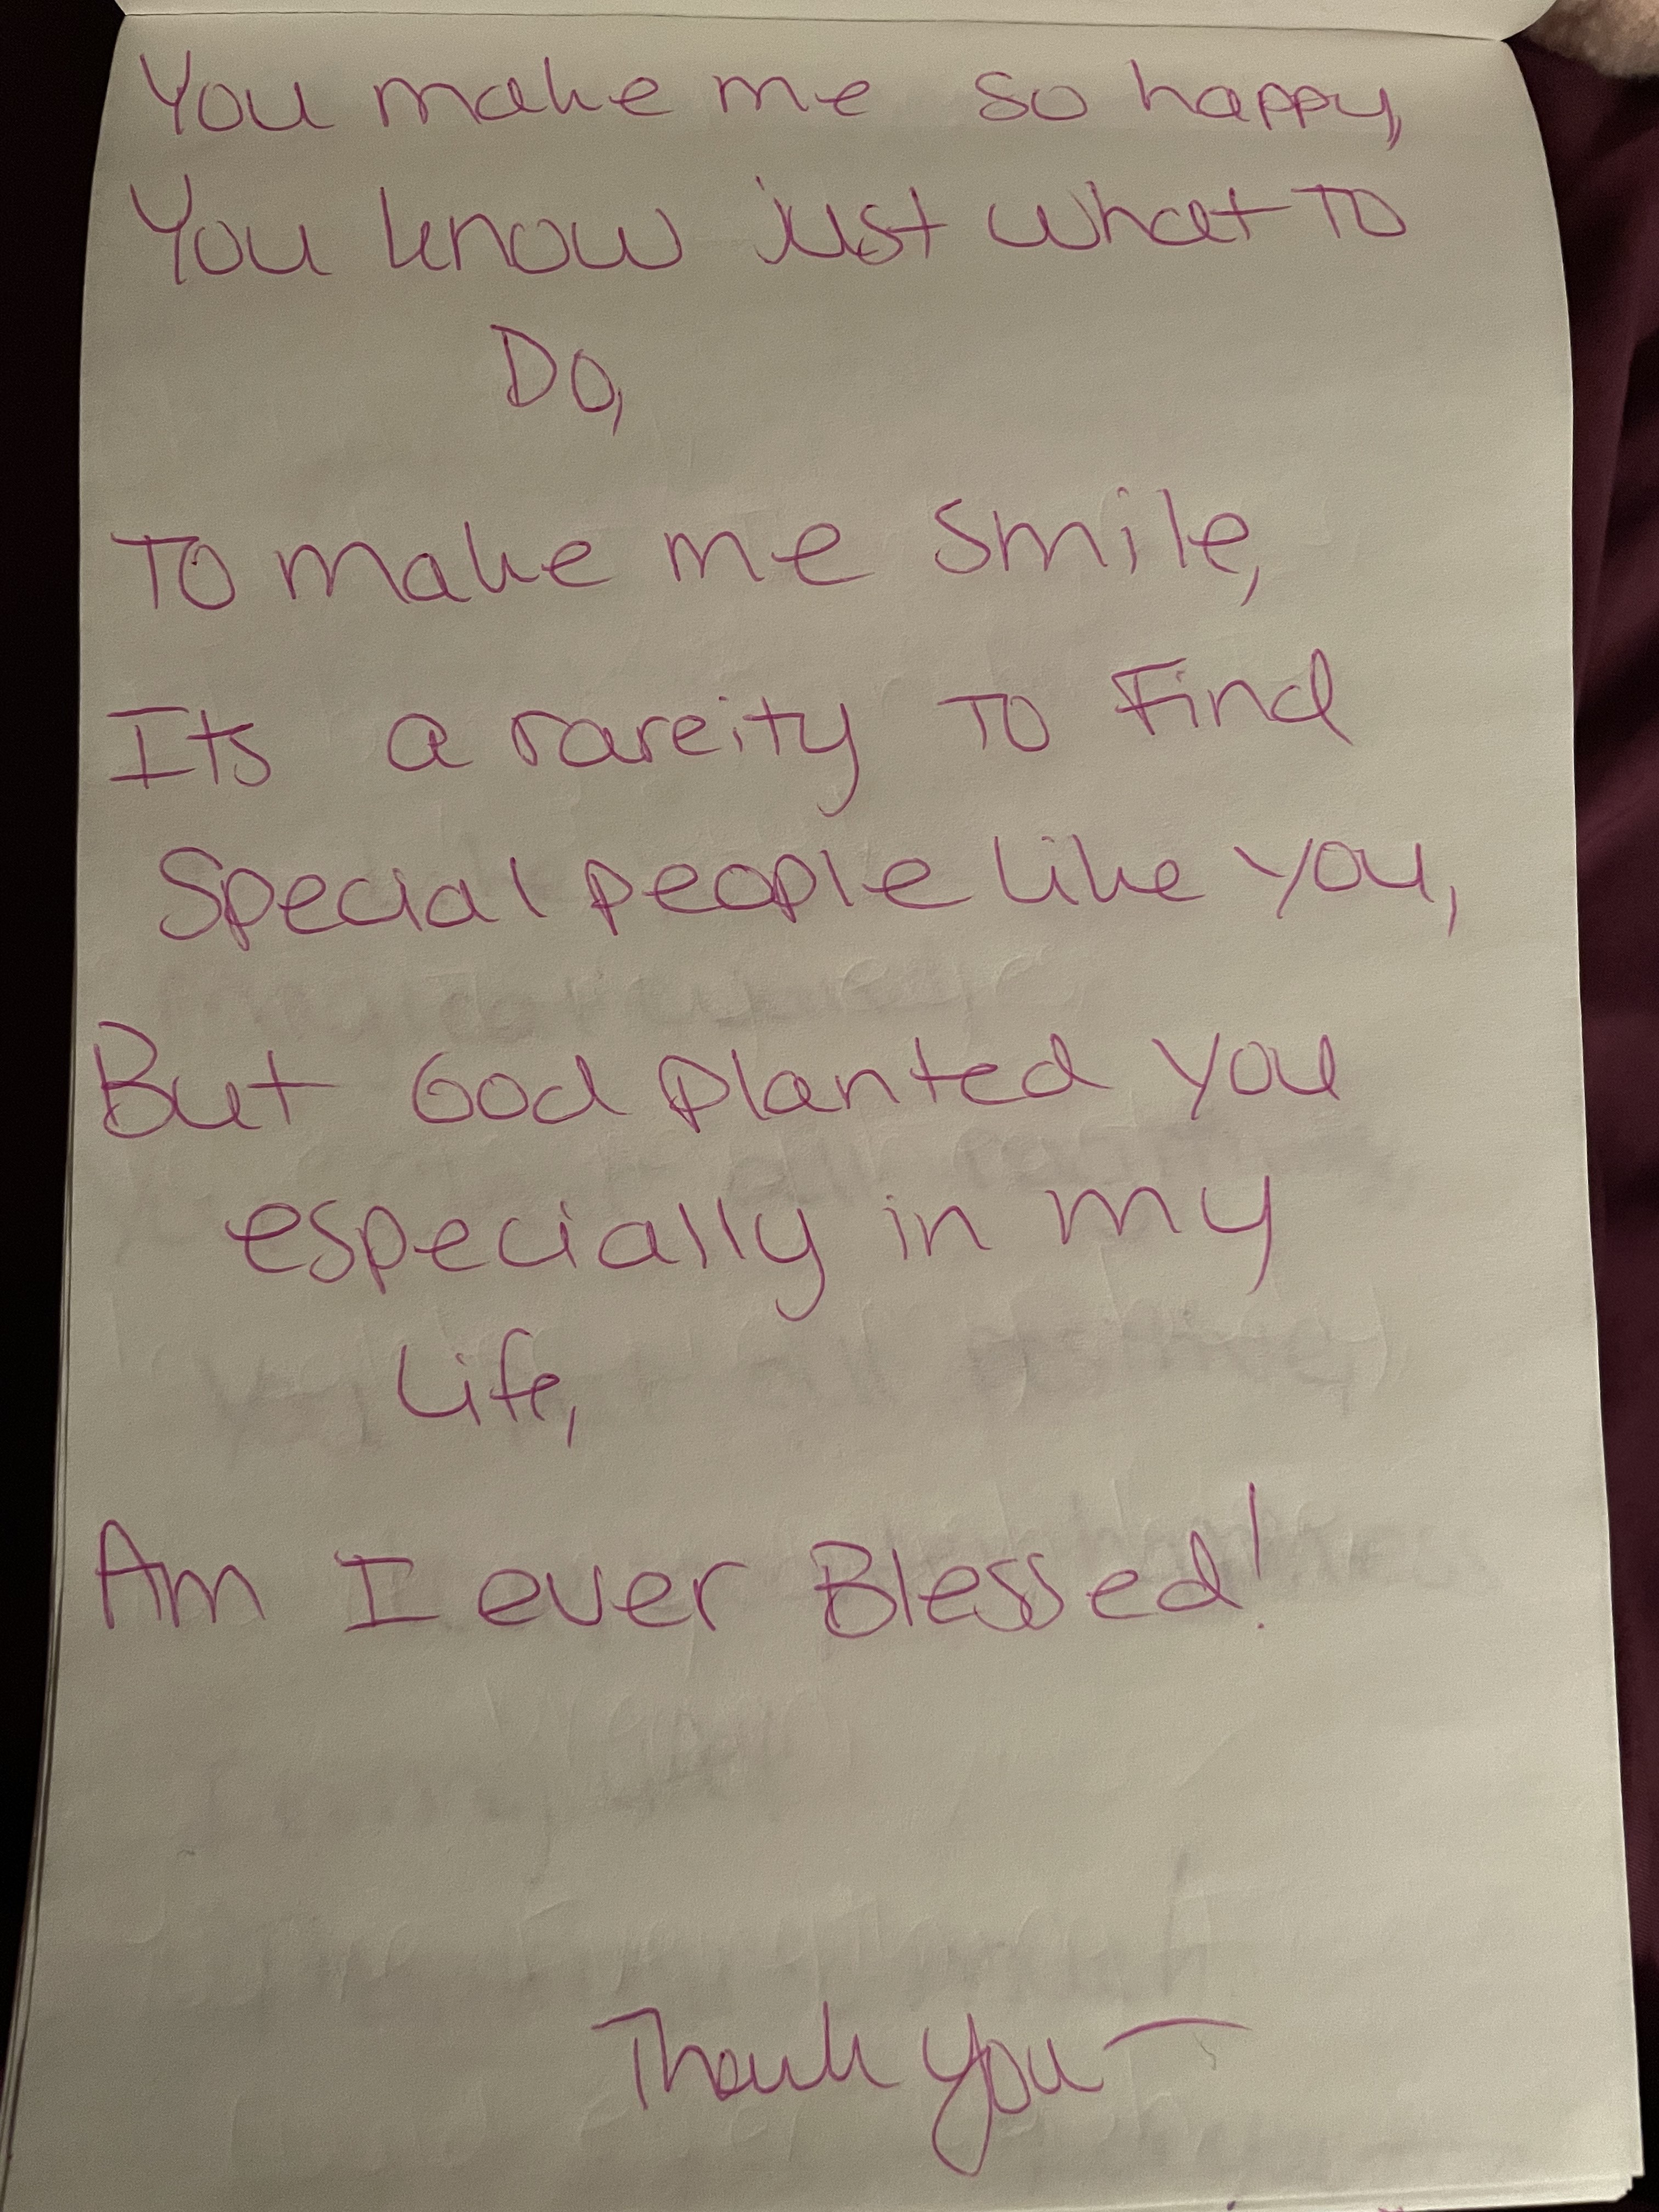 You make me so happy,
You know just what To
Do,
To make me smile,
Its a rareity To Find
Special people like you,
But God planted you
especially in my
Life,
Am I ever Blessed!
Thank you —